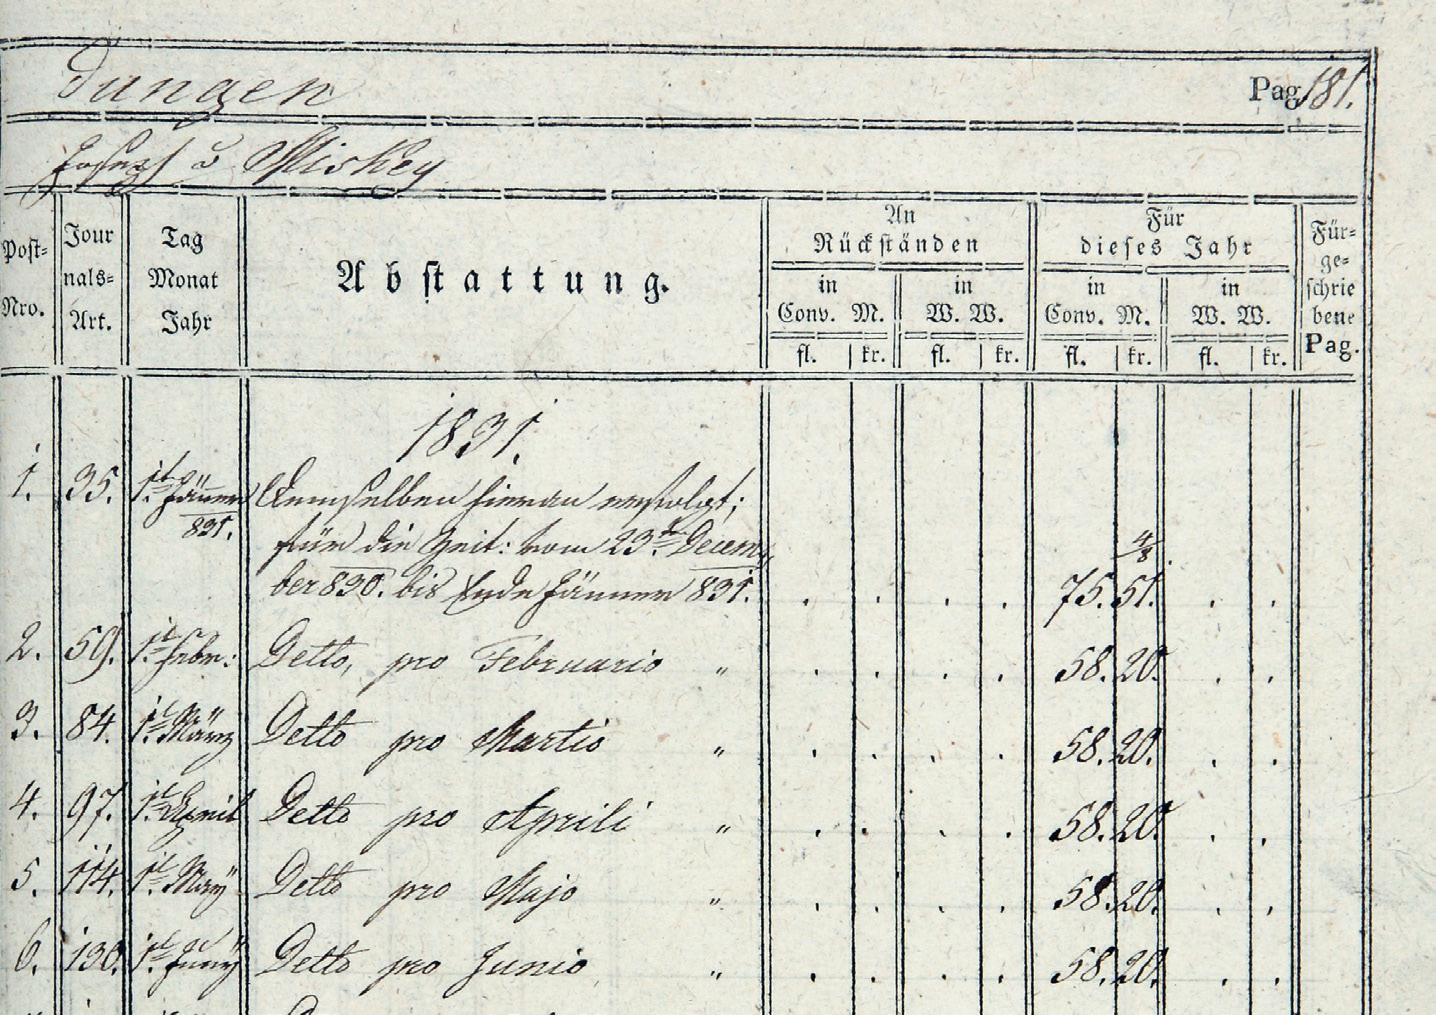 dungen Pag. 181.
Joseph v Miskey
Post- Nro.
Journals- Art.
Tag Monat Jahr
Abstattung.
An Rückständen
Für dieses Jahr
Fürgeschriebene Pag.
in Conv. M. in W. W. in Conv. M. in W. W.
fl. kr. fl. kr. fl. kr. fl. kr.
1831.
1. 35. 1t. Jänner 831. Demselben hieran erfolgt;
für die Zeit: vom 23t. Decem
ber 830. bis Ende Jänner 831. . . . . 75. 51. 4/8 . .
2. 59. 1t. Febr: Detto, pro Februario " . . . . 58. 20. . .
3. 84. 1t. März Detto pro Martio " . . . . 58. 20. . .
4. 97. 1t. April Detto pro Aprili " . . . . 58. 20. . .
5. 114. 1t. Maÿ Detto pro Majo " . . . . 58. 20. . .
6. 130. 1t. Junÿ Detto pro Junio " . . . . 58. 20. . .